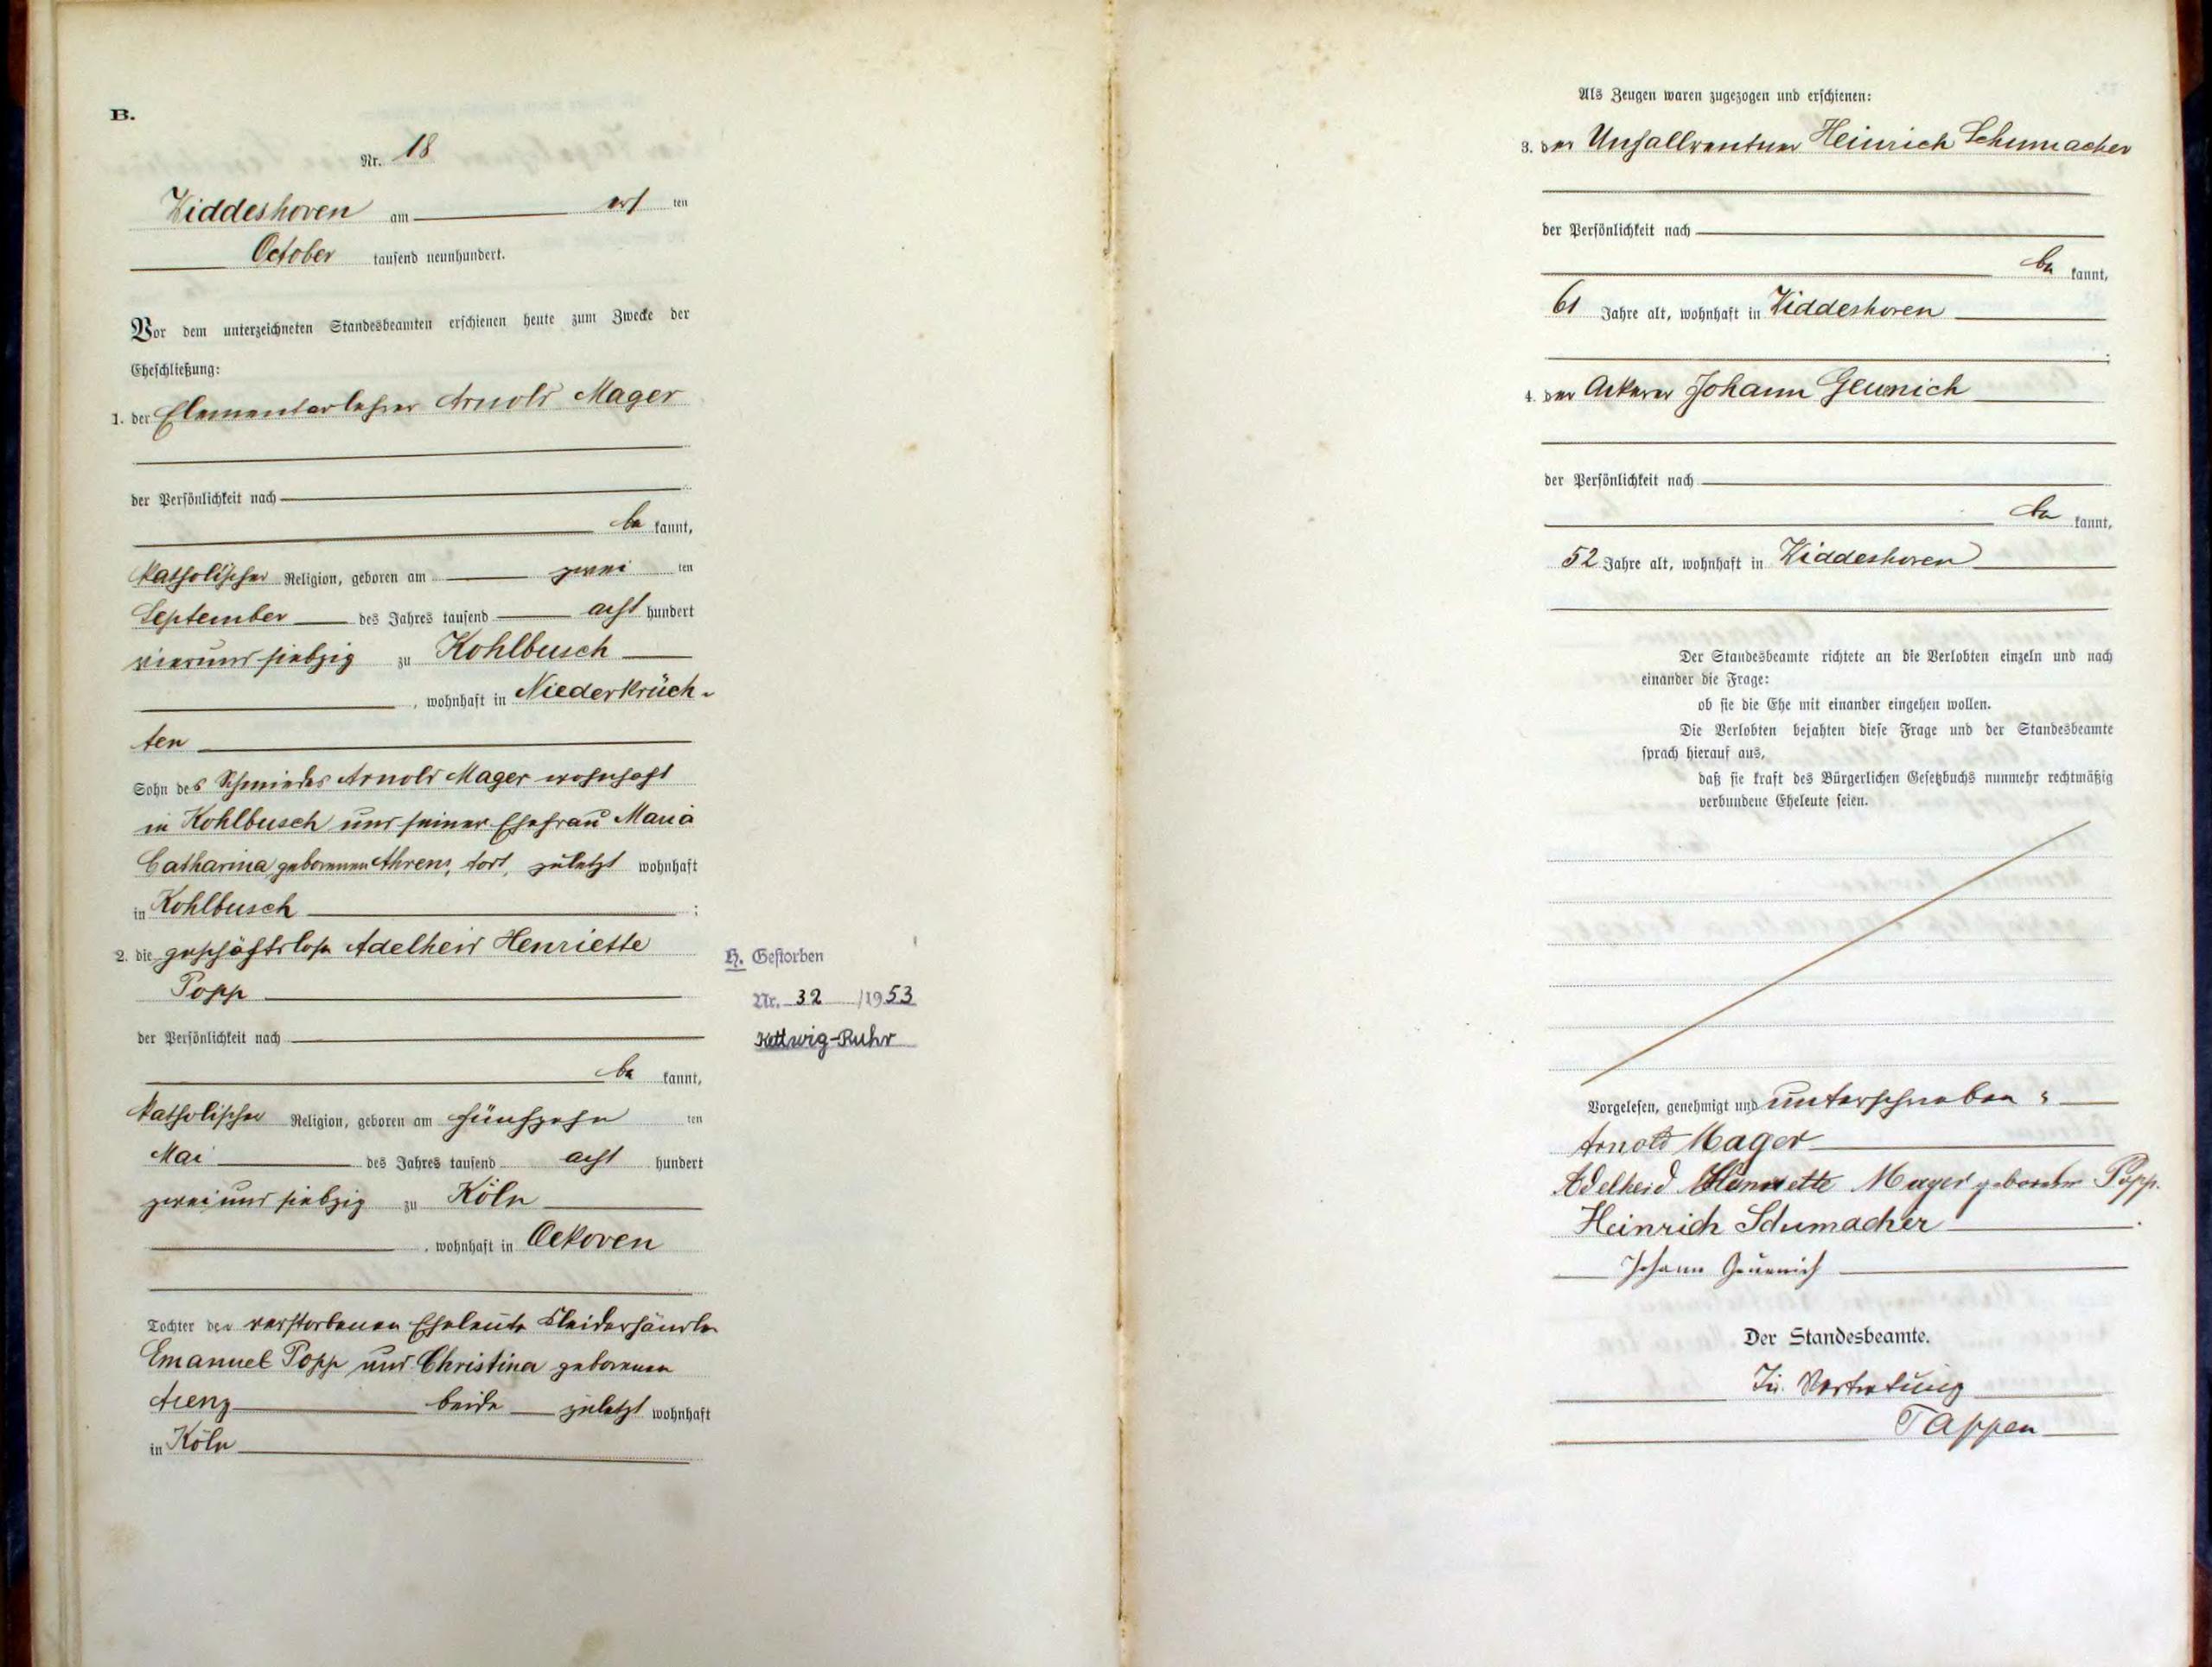 B.
Nr. 18
Widdeshoven am acht ten
October tausend neunhundert.
Vor dem unterzeichneten Standesbeamten erschienen heute zum Zwecke der
Eheschließung:
1. der Elementarlehrer Arnold Mager
der Persönlichkeit nach
be kannt,
katholischer Religion, geboren am zwei ten
September des Jahres tausend acht hundert
vierundsiebzig zu Kohlbusch
, wohnhaft in Niederkrüch-
ten
Sohn des Schmiedes Arnold Mager wohnhaft
in Kohlbusch und seiner Ehefrau Maria
Catharina geborenen Ahrens, zuletzt wohnhaft
in Kohlbusch ;
2. die geschäftslose Adelheid Henriette
Popp
der Persönlichkeit nach
be kannt,
katholischer Religion, geboren am fünfzehn ten
Mai des Jahres tausend acht hundert
zweiundsiebzig zu Köln
, wohnhaft in Oekoven
Tochter der verstorbenen Eheleute Kleiderhändler
Emanuel Popp und Christina geborenen
beide zuletzt wohnhaft
in Köln
H. Gestorben
Nr. 32 /1953
Kettwig-Ruhr
Als Zeugen waren zugezogen und erschienen:
3. der Unfallrentner Heinrich Schumacher
der Persönlichkeit nach
be kannt,
61 Jahre alt, wohnhaft in Widdeshoven
;
4. der Ackerer Johann Geuenich
der Persönlichkeit nach
be kannt,
52 Jahre alt, wohnhaft in Widdeshoven
Der Standesbeamte richtete an die Verlobten einzeln und nach
einander die Frage:
ob sie die Ehe mit einander eingehen wollen.
Die Verlobten bejahten diese Frage und der Standesbeamte
sprach hierauf aus,
daß sie kraft des Bürgerlichen Gesetzbuchs nunmehr rechtmäßig
verbundene Eheleute seien.
Vorgelesen, genehmigt und unterschrieben:
Arnold Mager
Adelheid Henriette Mager geborene Popp.
Heinrich Schumacher
Johann Geuenich
Der Standesbeamte.
In Vertretung
Tappen